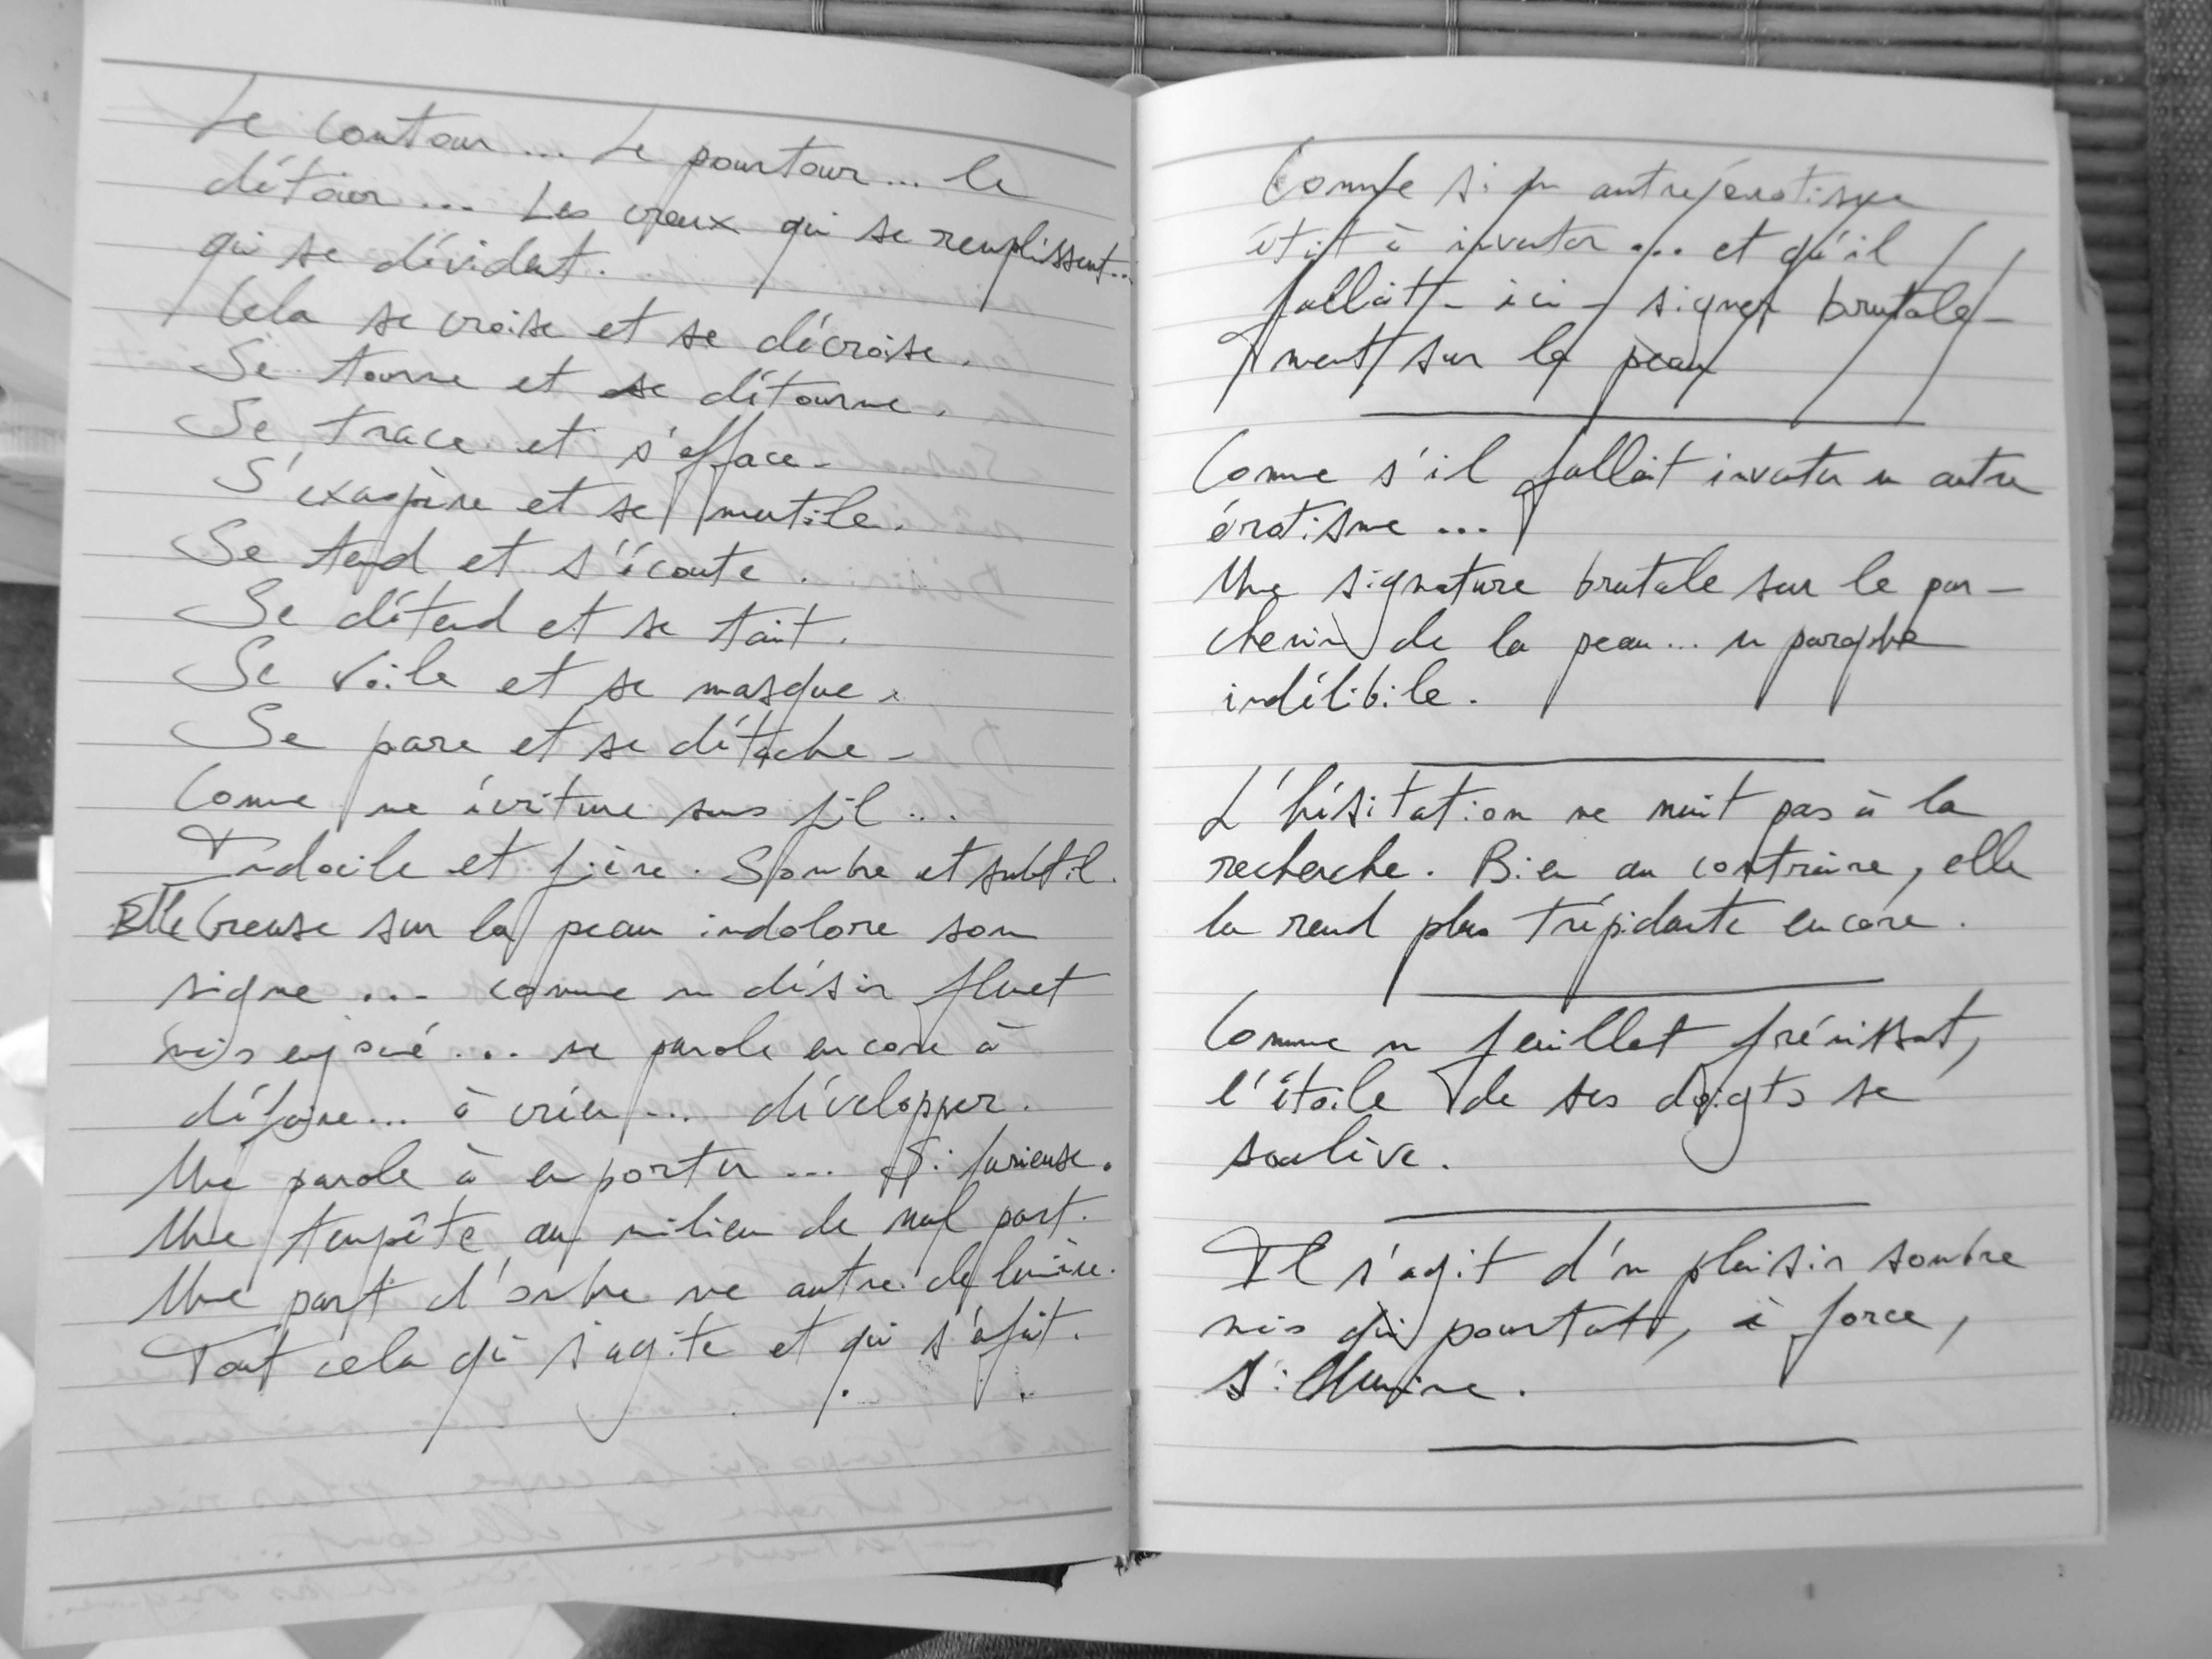 Le contour... Le pourtour... le
détour... Les creux qui se remplissent...
qui se dévident.
Cela se croise et se décroise.
Se tourne et se détourne.
Se trace et s'efface.
S'exaspère et se mutile.
Se tend et s'écoute.
Se détend et se tait.
Se voile et se masque.
Se pare et se détache.
Comme une écriture sans fil...
Indocile et fière. Sombre et subtil.
Elle creuse sur la peau indolore son
signe... comme un désir fluet
mais enjoué... une parole encore à
défaire... à créer... développer.
Une parole à emporter... Si furieuse.
Une tempête au milieu de nul part.
Une part d'ombre une autre de lumière.
Tout cela qui s'agite et qui s'afait.
Comme si un autre érotisme
était à inventer... et qu'il
fallait - ici - signer brutale-
ment sur la peau
Comme s'il fallait inventer un autre
érotisme...
Une signature brutale sur le par-
chemin de la peau... un paraphe
indélibile.
L'hésitation ne nuit pas à la
recherche. Bien au contraire, elle
la rend plus trépidante encore.
Comme un feuillet frémissant,
l'étoile de ses doigts se
soulève.
Il s'agit d'un plaisir sombre
mais qui pourtant, à force,
s'illumine.